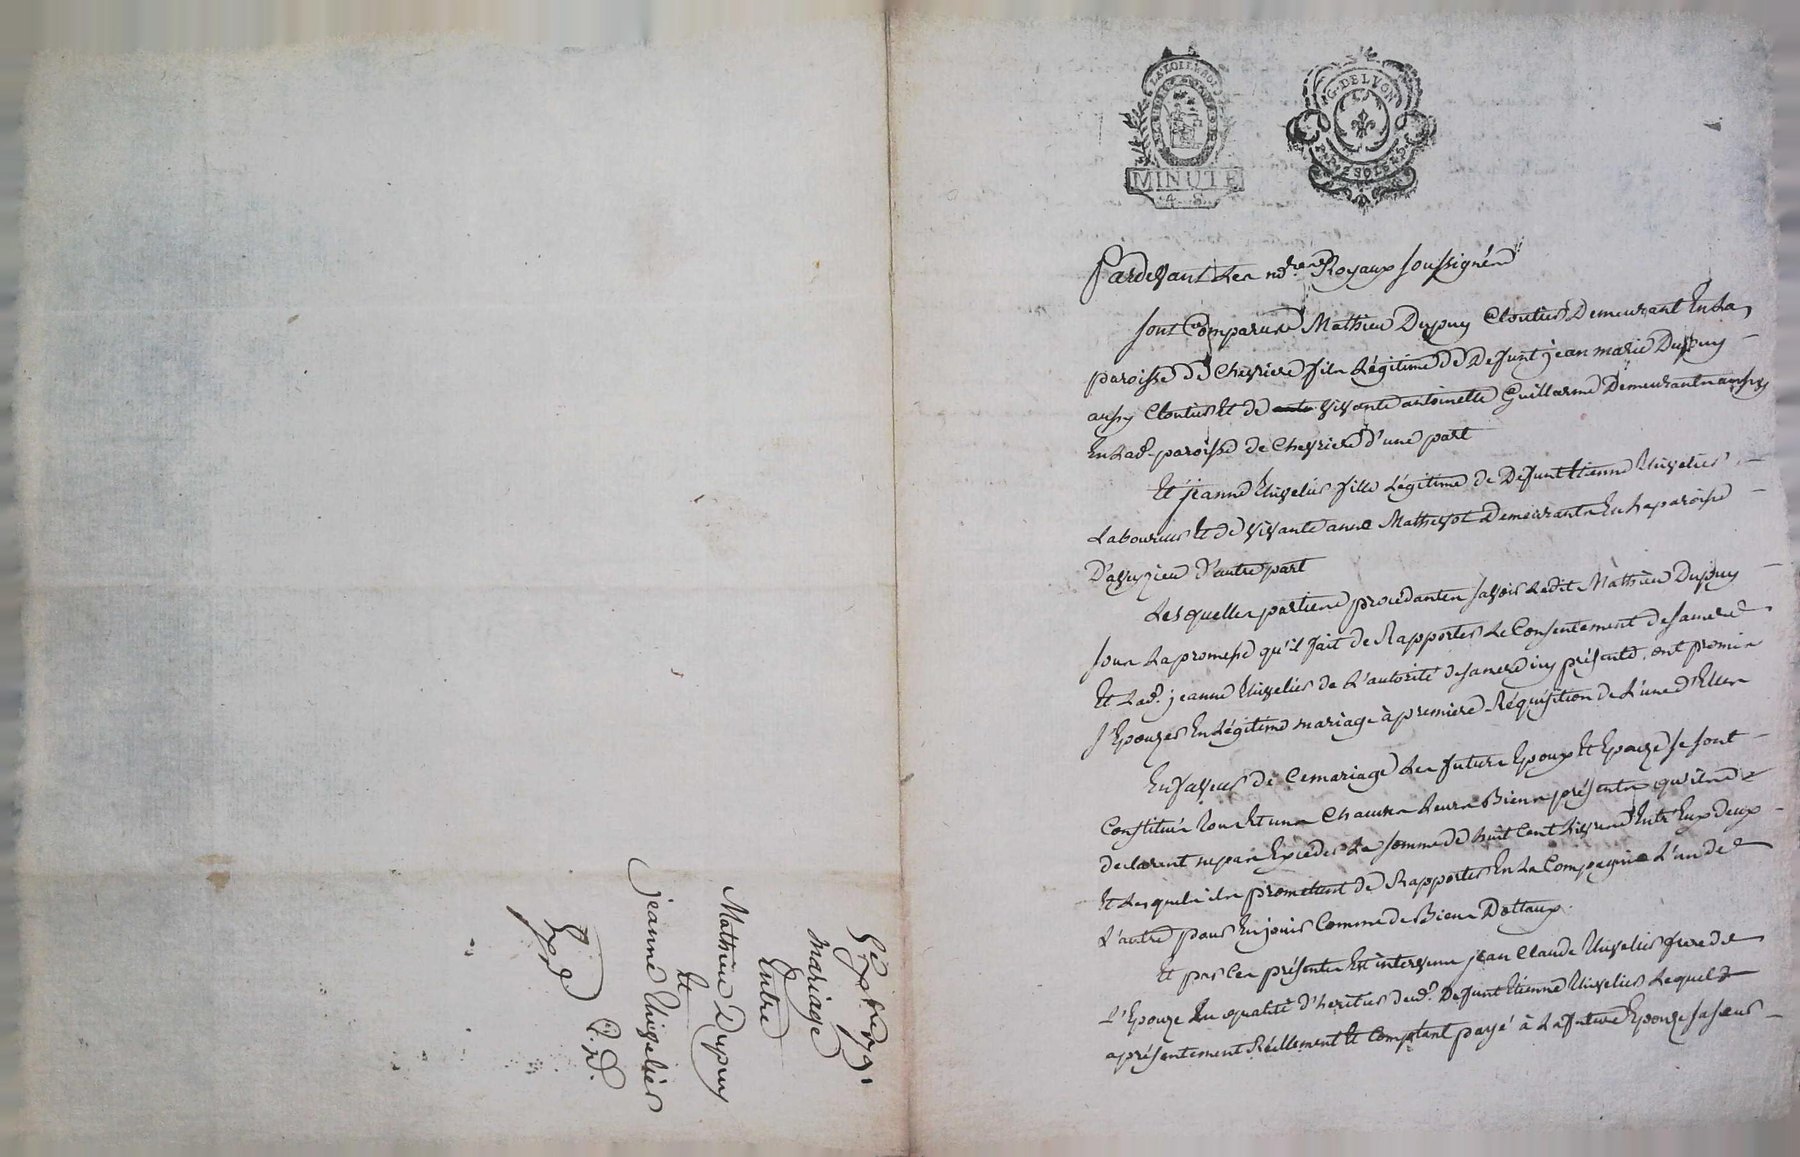 LA LOI LE ROI
MINUTE
4 S
G. DE LYON
Pardevant Les nores Royaux soussignés
sont Comparus Mathieu Dupuy Cloutier Demeurant En La
paroisse de Chevriere fils Légitime de Defunt jean marie Dupuy
aussy Cloutier Et de vivante antoinette Guillarme Demeurant aussy
En Lad. paroisse de Chevriere d'une part
Et jeanne Thivelier fille Légitime de Defunt Etienne Thivelier
Laboureur Et de vivante anne Demeurante En La paroisse
D'aveyzieu d'autre part
Lesquelles parties procedantes savoir Ledit Mathieu Dupuy
sous La promesse qu'il fait de Rapporter Le Consentement de sa mere
Et Lad. jeanne Thivelier de L'autorité de sa mere icy présente, ont promis
s'Epouzer En Légitime mariage à premiere Réquisition de L'une d'Elles
En faveur de Ce mariage Les futurs Epoux Et Epouze se sont
Constitués tous Et uns Chacuns Leurs Biens présents qu'ils
declarent ne pas Exceder La somme de huit Cent Livres Entr'Eux deux
Et Lesquels ils promettent de Rapporter En La Compagnie L'un de
L'autre pour En jouir Comme de Biens Dottaux.
Et par Ces présentes Est intervenu jean Claude Thivelier frere de
L'Epouze En qualité d'heritier dud. Defunt Etienne Thivelier Lequel
a présentement Réellement Et Comptant payé à La future Epouze sa sœur
mariage
Entre
Mathieu Dupuy
Et
jeanne Thivelier
Exp.